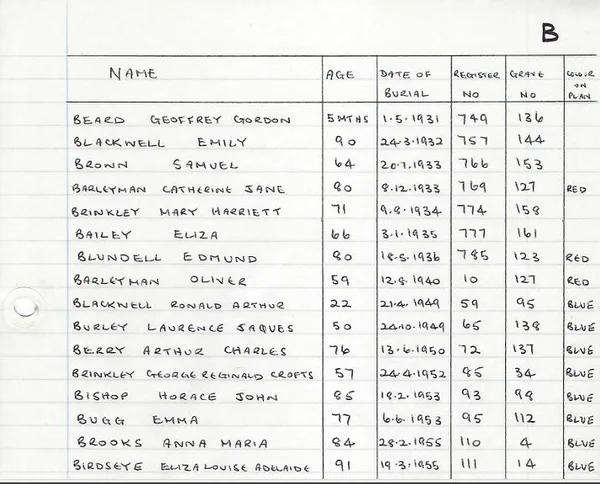 B
NAME AGE DATE OF BURIAL REGISTER NO GRAVE NO COLOUR ON PLAN
BEARD GEOFFREY GORDON 5 MTHS 1.5.1931 749 136
BLACKWELL EMILY 90 24.3.1932 757 144
BROWN SAMUEL 64 20.7.1933 766 153
BARLEYMAN CATHERINE JANE 80 8.12.1933 769 127 RED
BRINKLEY MARY HARRIETT 71 9.8.1934 774 158
BAILEY ELIZA 66 3.1.1935 777 161
BLUNDELL EDMUND 80 18.5.1936 785 123 RED
BARLEYMAN OLIVER 59 12.8.1940 10 127 RED
BLACKWELL RONALD ARTHUR 22 21.4.1949 59 95 BLUE
BURLEY LAURENCE JAQUES 50 24.10.1949 65 138 BLUE
BERRY ARTHUR CHARLES 76 13.6.1950 72 137 BLUE
BRINKLEY GEORGE REGINALD CROFTS 57 24.4.1952 85 34 BLUE
BISHOP HORACE JOHN 85 18.2.1953 93 98 BLUE
BUGG EMMA 77 6.6.1953 95 112 BLUE
BROOKS ANNA MARIA 84 28.2.1955 110 4 BLUE
BIRDSEYE ELIZA LOUISE ADELAIDE 91 19.3.1955 111 14 BLUE